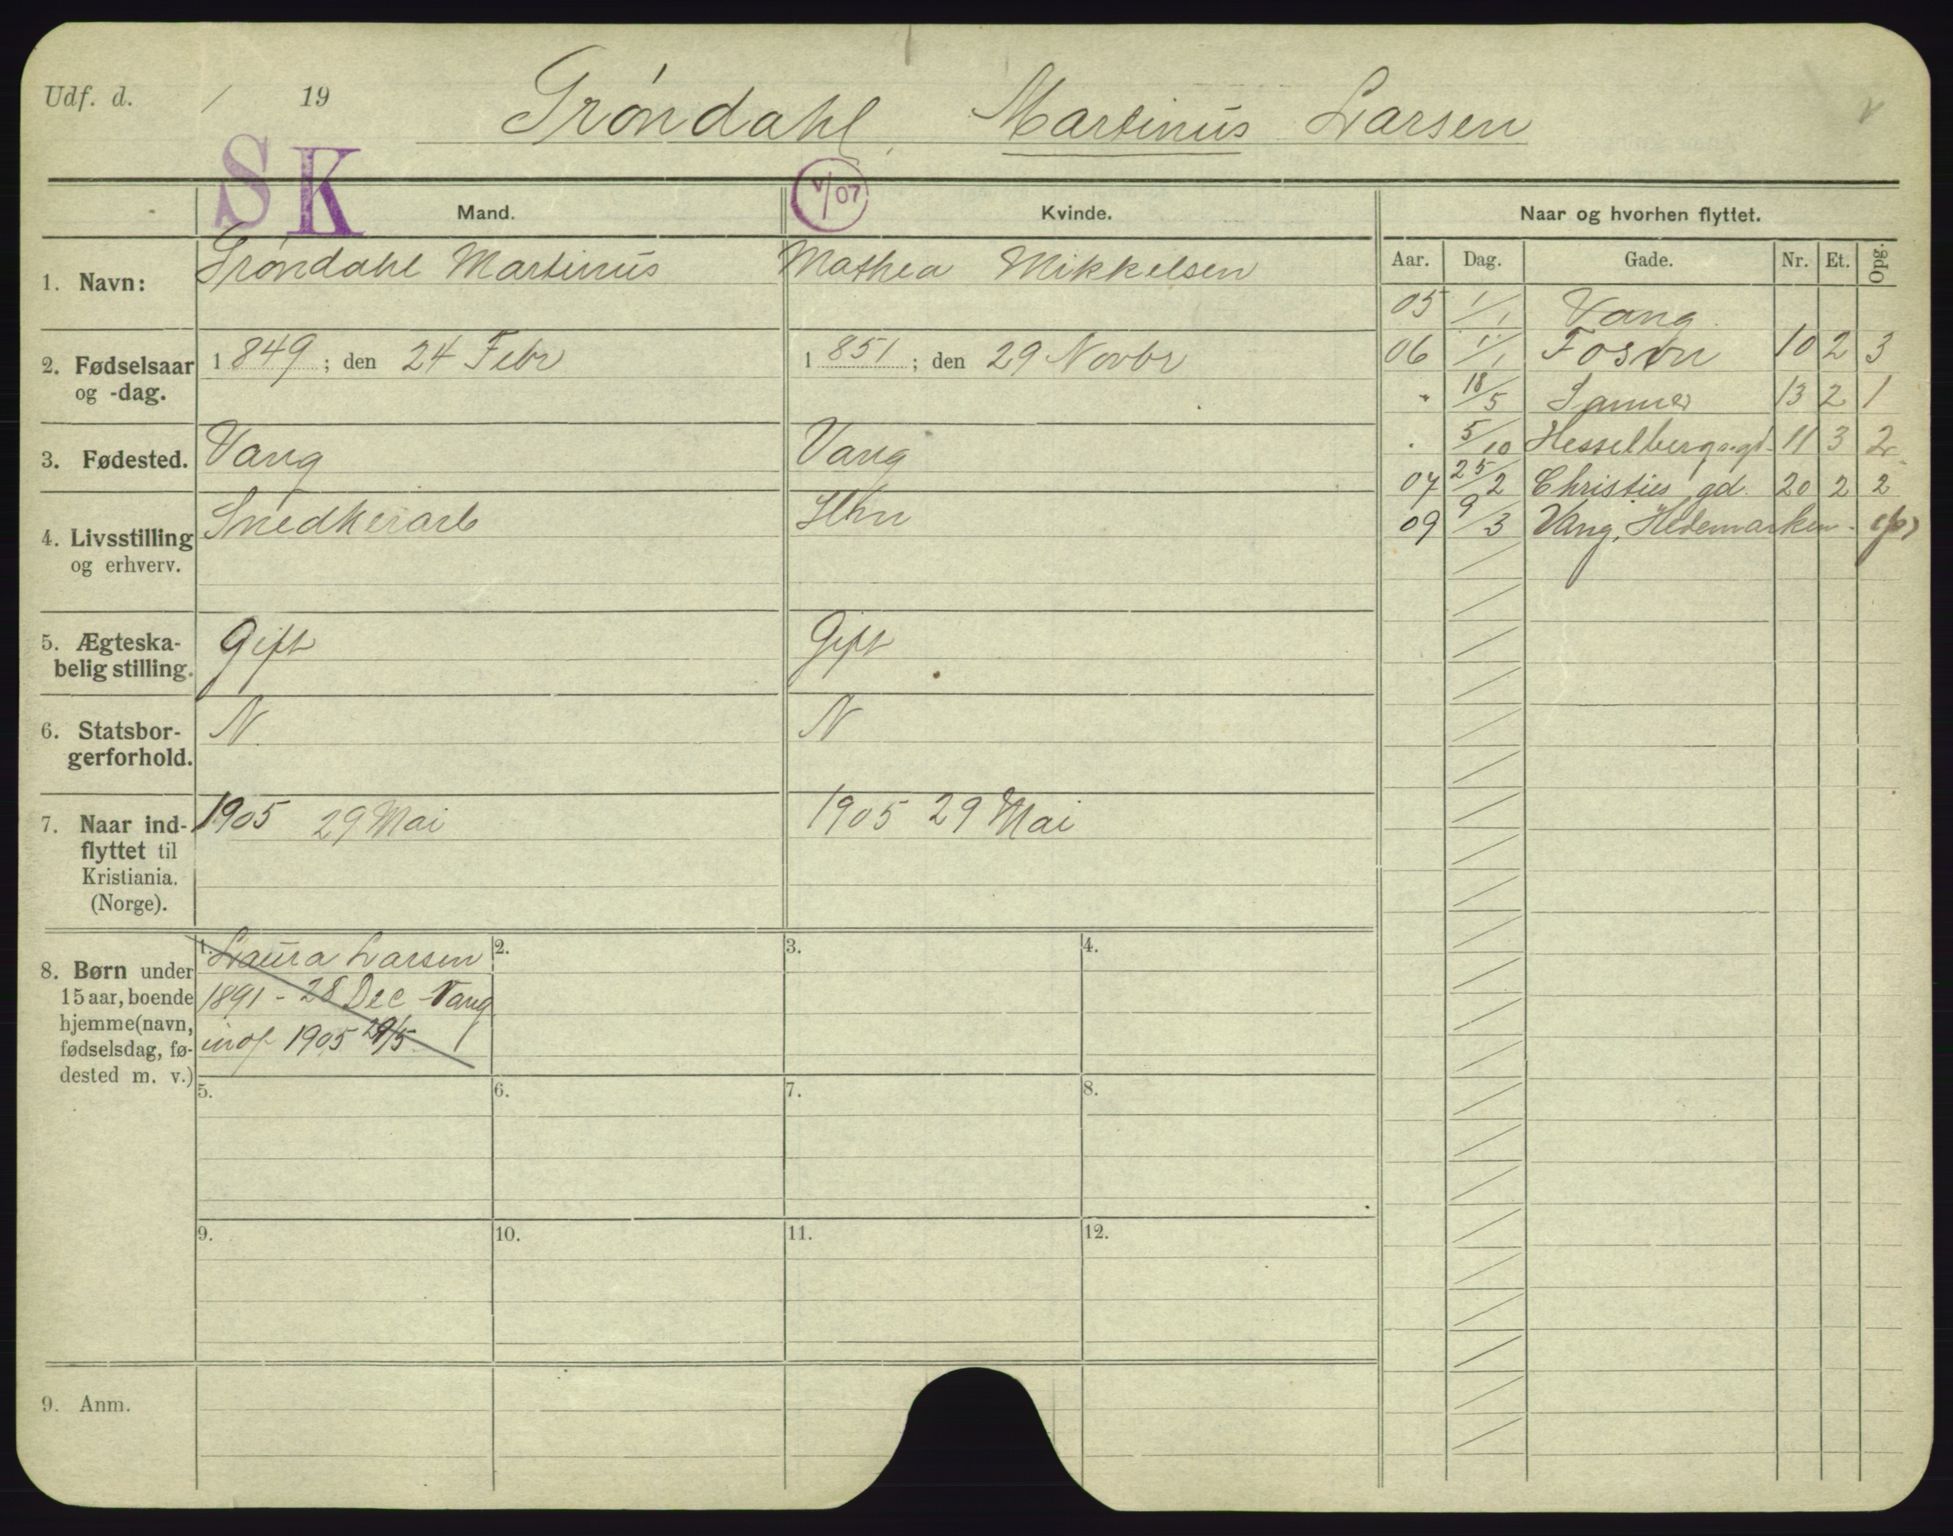 Udf. d. / 19
Grøndahl, Martinus Larsen
SK
Mand.
V/07
Kvinde.
Naar og hvorhen flyttet.
Aar. Dag. Gade. Nr. Et. Opg.
1. Navn: Grøndahl Martinus Mathea Mikkelsen
2. Fødselsaar og -dag. 1 849 ; den 24 Febr 1 851 ; den 29 Novbr
3. Fødested. Vang Vang
4. Livsstilling og erhverv. Snedkerarb Hhn
5. Ægteska-
belig stilling. Gift Gift
6. Statsbor-
gerforhold. N N
7. Naar ind-
flyttet til
Kristiania.
(Norge). 1905 29 Mai 1905 29 Mai
05 1/1 Vang
06 1/1 Fosvn 10 2 3
" 18/5 Sanner 13 2 1
" 5/10 Hesselbergsgt 11 3 2
07 25/2 Christies gd. 20 2 2
09 9/3 Vang, Hedemarken
8. Børn under
15 aar, boende
hjemme (navn,
fødselsdag, fø-
dested m. v.)
1. Laura Larsen
1891 - 28 Dec - Vang
indf 1905 29/5
2.
3.
4.
5.
6.
7.
8.
9.
10.
11.
12.
9. Anm.